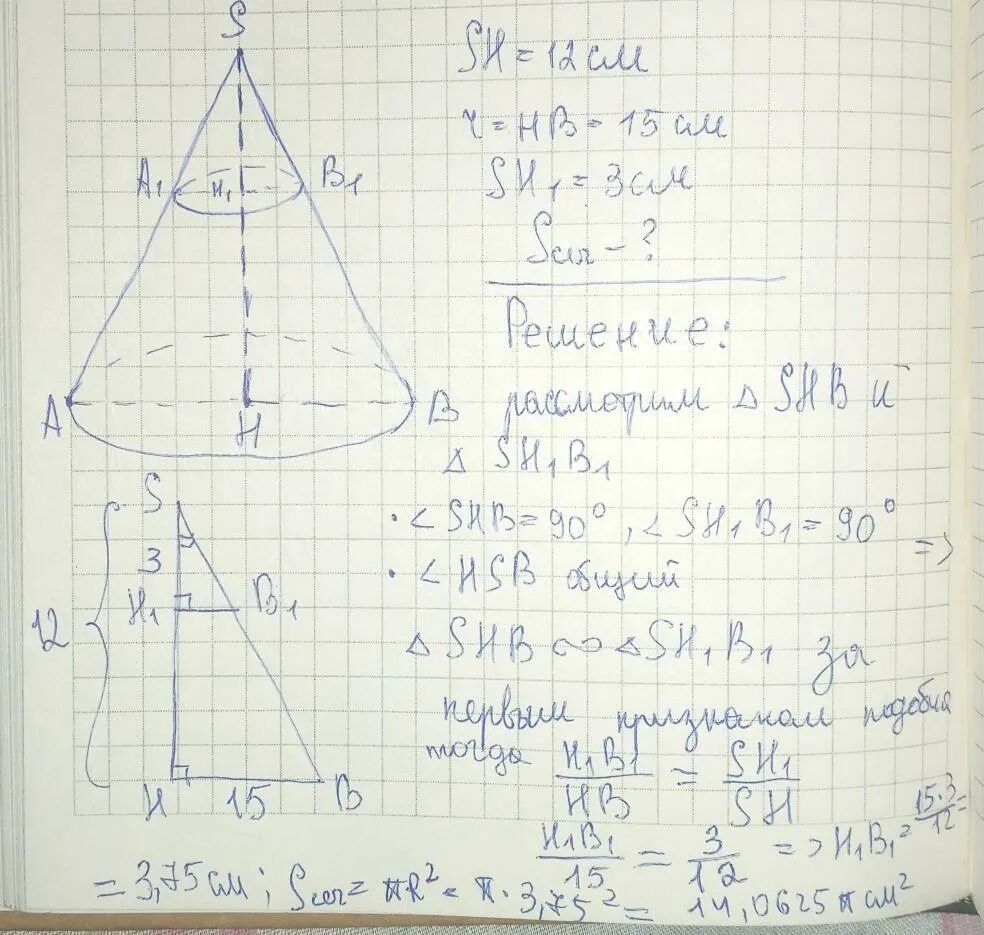 S
A₁ H₁ B₁
A H B
SH = 12 см
r = HB = 15 см
SH₁ = 3 см
Sсеч - ?
Решение:
рассмотрим △ SHB и
△ SH₁B₁
· ∠ SHB = 90°, ∠ SH₁B₁ = 90°
· ∠ HSB общий =>
△ SHB ∾ △ SH₁B₁ за
первым признаком подобия
тогда H₁B₁/HB = SH₁/SH
H₁B₁/15 = 3/12 => H₁B₁ = 15·3/12 =
= 3,75 см; Sсеч = πR² = π · 3,75² = 14,0625 π см²
S
3
H₁ B₁
12
H 15 B